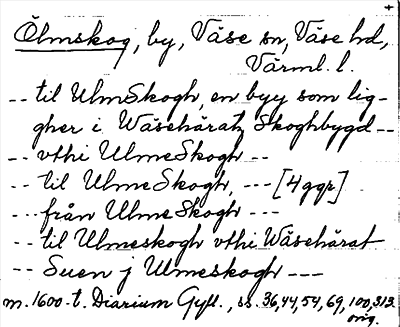 Ölmskog, by, Väse sn, Väse hd,
Värml. l.
-- til UlmSkogh, en byy som lig-
gher i Wäsehäratz Skoghbygd --
-- vthi UlmeSkogh --
-- til UlmeSkogh, --- [4 ggr]
--- från UlmeSkogh ---
-- til Ulmeskogh vthi Wäsehärat
-- Suen j Ulmeskogh ---
m. 1600-t. Diarium Gyll., ss. 36,44,54,69,100,313
orig.